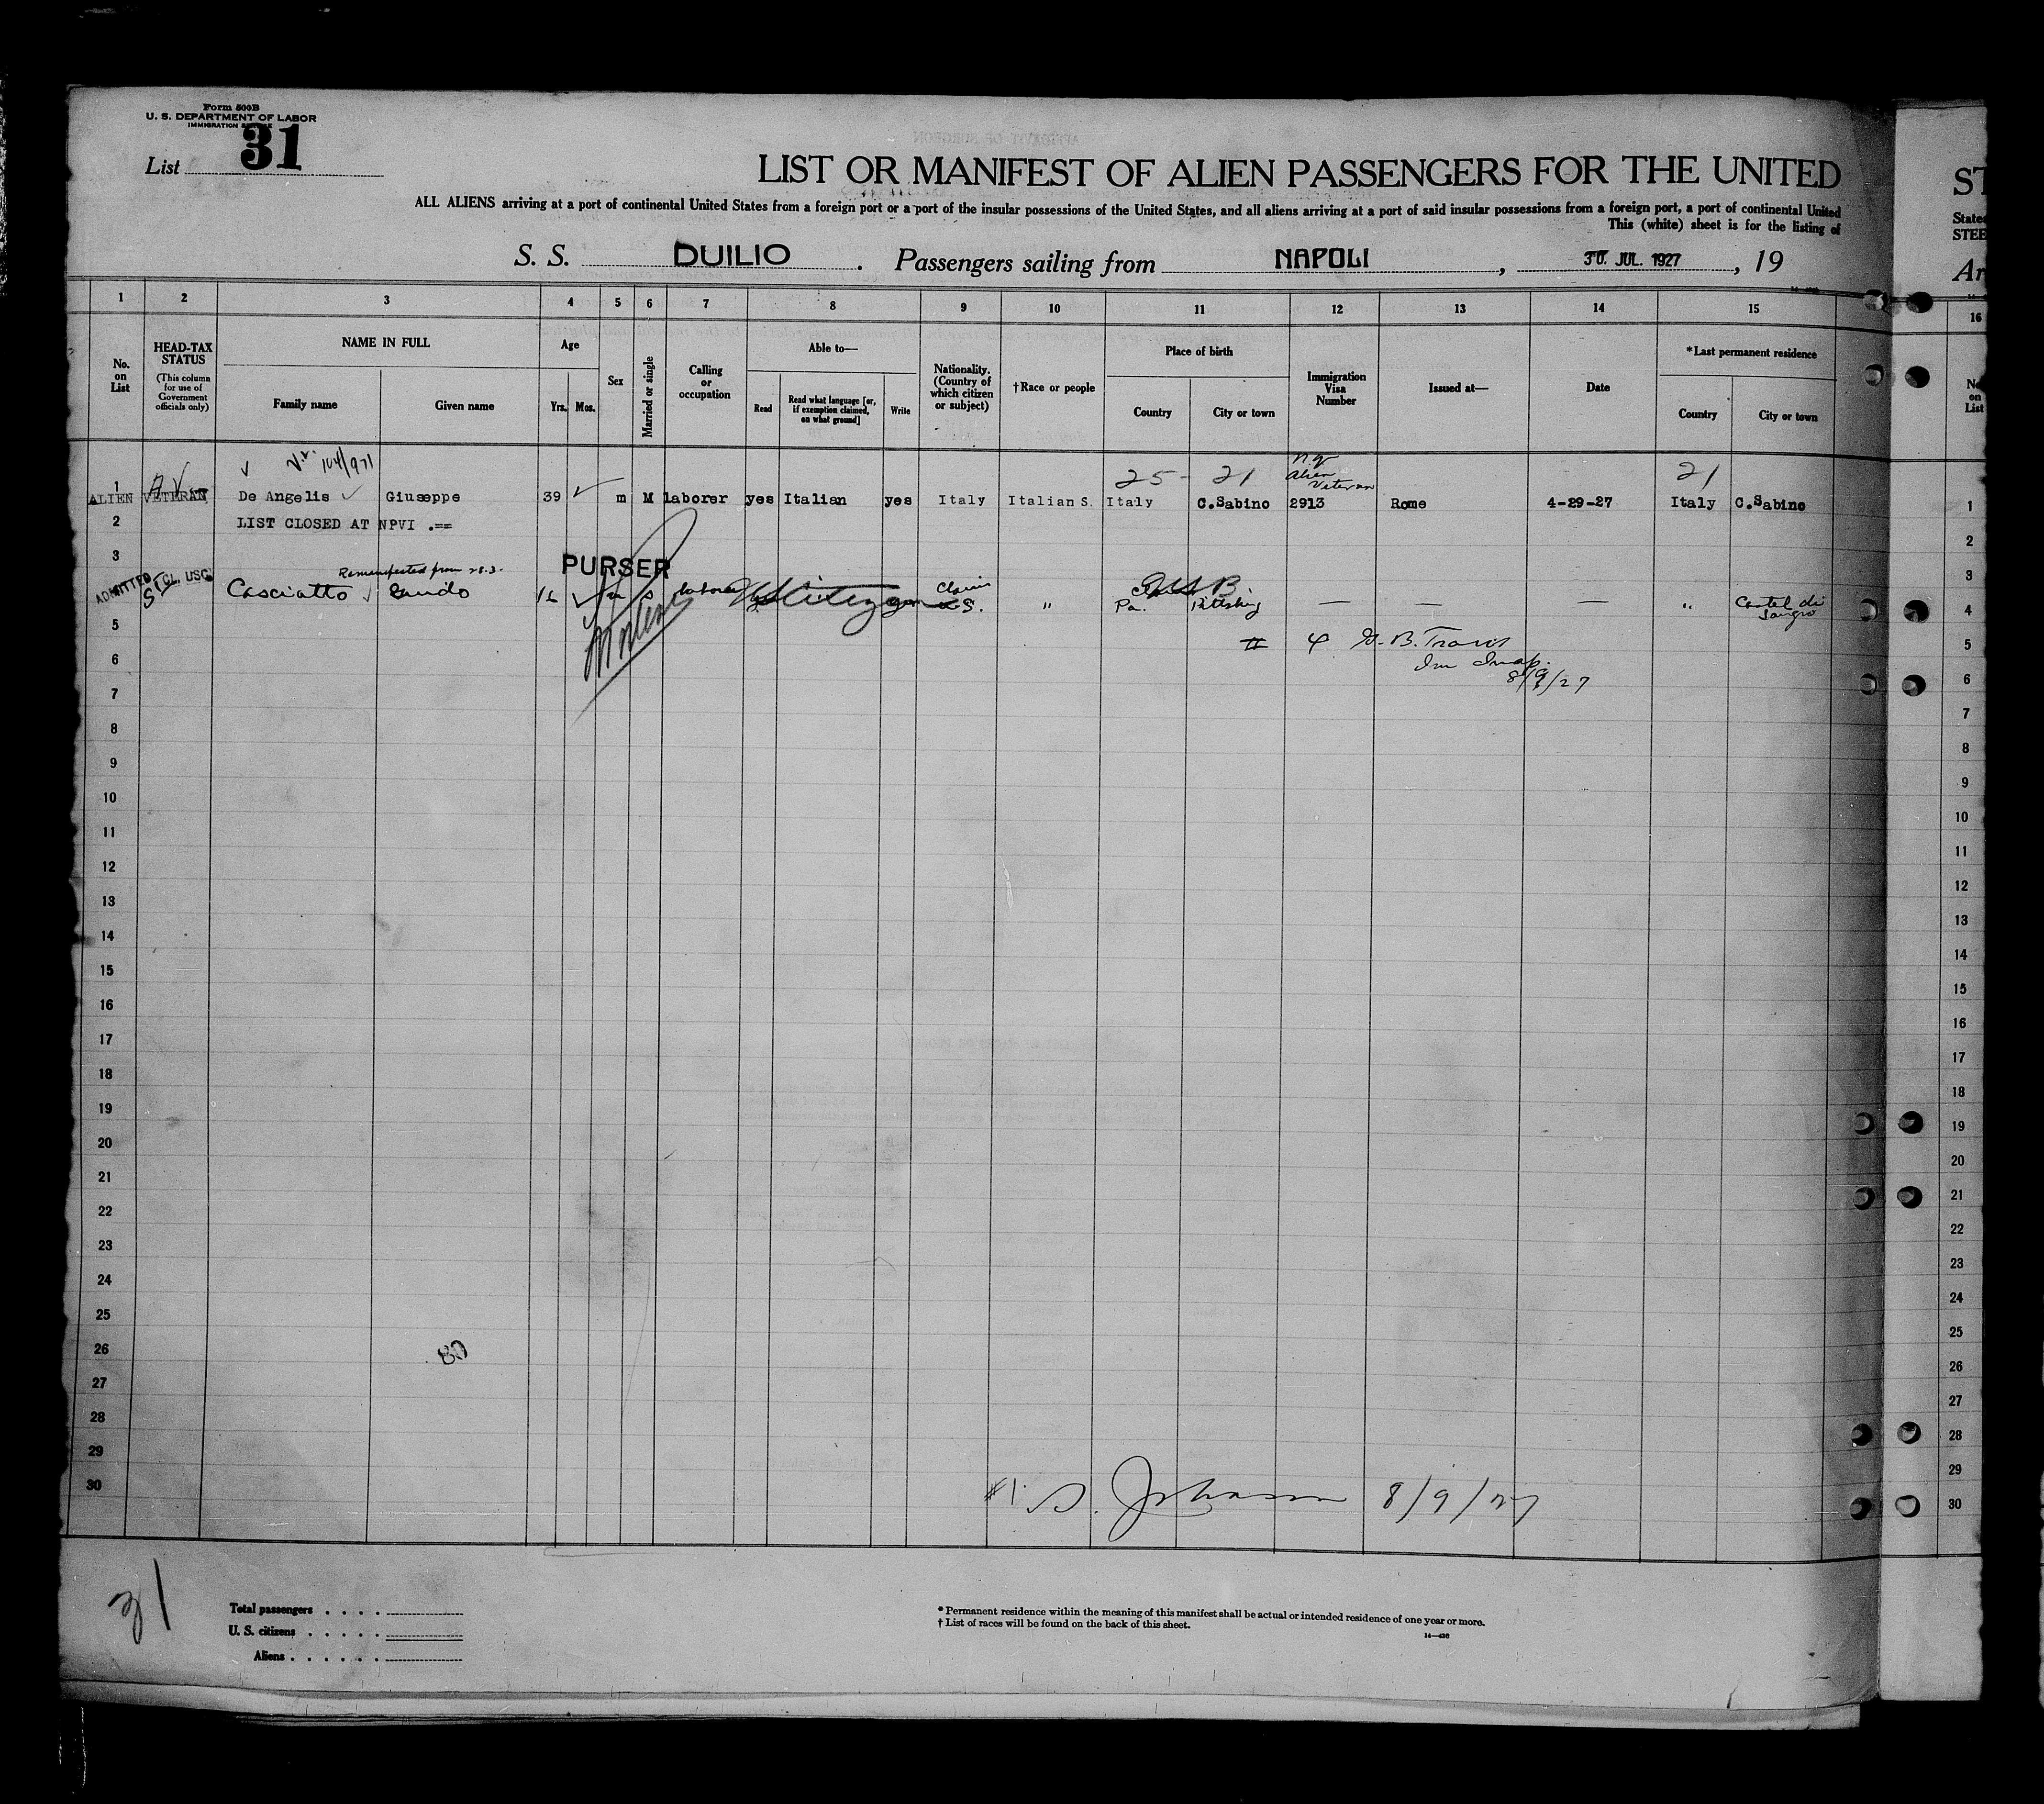 Form 500B
U. S. DEPARTMENT OF LABOR
IMMIGRATION
List 31
LIST OR MANIFEST OF ALIEN PASSENGERS FOR THE UNITED
ALL ALIENS arriving at a port of continental United States from a foreign port or a port of the insular possessions of the United States, and all aliens arriving at a port of said insular possessions from a foreign port, a port of continental United
This (white) sheet is for the listing of
S. S. DUILIO. Passengers sailing from NAPOLI, 30. JUL. 1927, 19
ST
States
STEE
Ar
1 2 3 4 5 6 7 8 9 10 11 12 13 14 15 16
No. on List
HEAD-TAX STATUS
(This column for use of Government officials only)
NAME IN FULL
Family name Given name
Age
Yrs. Mos.
Sex
Married or single
Calling or occupation
Able to—
Read
Read what language [or, if exemption claimed, on what ground]
Write
Nationality. (Country of which citizen or subject)
†Race or people
Place of birth
Country City or town
Immigration Visa Number
Issued at—
Date
*Last permanent residence
Country City or town
No. on List
104/971
25 - 21 n.q. Alien Veteran 21
1 ALIEN VETERAN AV De Angelis Giuseppe 39 m M laborer yes Italian yes Italy Italian S. Italy C.Sabino 2913 Rome 4-29-27 Italy C.Sabino 1
2 LIST CLOSED AT NPVI .== 2
3 PURSER 3
Remanifested from 28.3.
ADMITTED CL. USC Casciatto Guido 16 m s laborer US Citizen Claim U.S. " USB Pa. Pittsburg — — — " Castel di Sangro 4
5 5
Im Insp.
6 8/9/27 6
7 7
8 8
9 9
10 10
11 11
12 12
13 13
14 14
15 15
16 16
17 17
18 18
19 19
20 20
21 21
22 22
23 23
24 24
25 25
26 80 26
27 27
28 28
29 29
30 #1. S. Johnson 8/9/27 30
31
Total passengers . . . .
U. S. citizens . . . . .
Aliens . . . . . .
* Permanent residence within the meaning of this manifest shall be actual or intended residence of one year or more.
† List of races will be found on the back of this sheet.